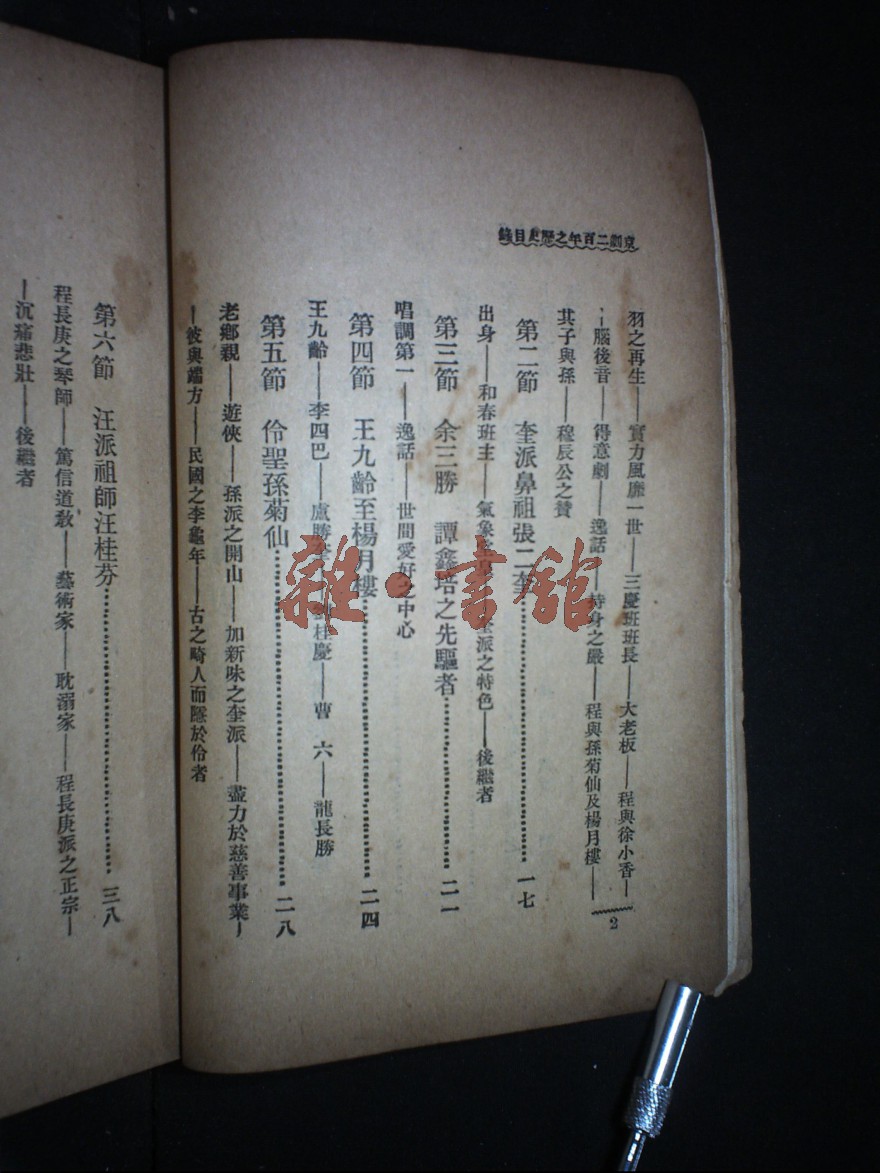 京劇二百年之歷史目錄
羽之再生——實力風靡一世——三慶班班長——大老板——程與徐小香—
—腦後音——得意劇——逸話——持身之嚴——程與孫菊仙及楊月樓——
其子與孫——穆辰公之贊
第二節 奎派鼻祖張二奎 一七
出身——和春班主——氣象 奎派之特色——後繼者
第三節 余三勝 譚鑫培之先驅者 二一
唱調第一——逸話——世間愛好之中心
第四節 王九齡至楊月樓 二四
王九齡——李四巴——盧勝奎 桂慶——曹 六——龍長勝
第五節 伶聖孫菊仙 二八
老鄉親——遊俠——孫派之開山——加新味之奎派——盡力於慈善事業—
—彼與端方——民國之李龜年——古之畸人而隱於伶者
2
第六節 汪派祖師汪桂芬 三八
程長庚之琴師——篤信道教——藝術家——耽溺家——程長庚派之正宗—
—沉痛悲壯——後繼者
雜·書館